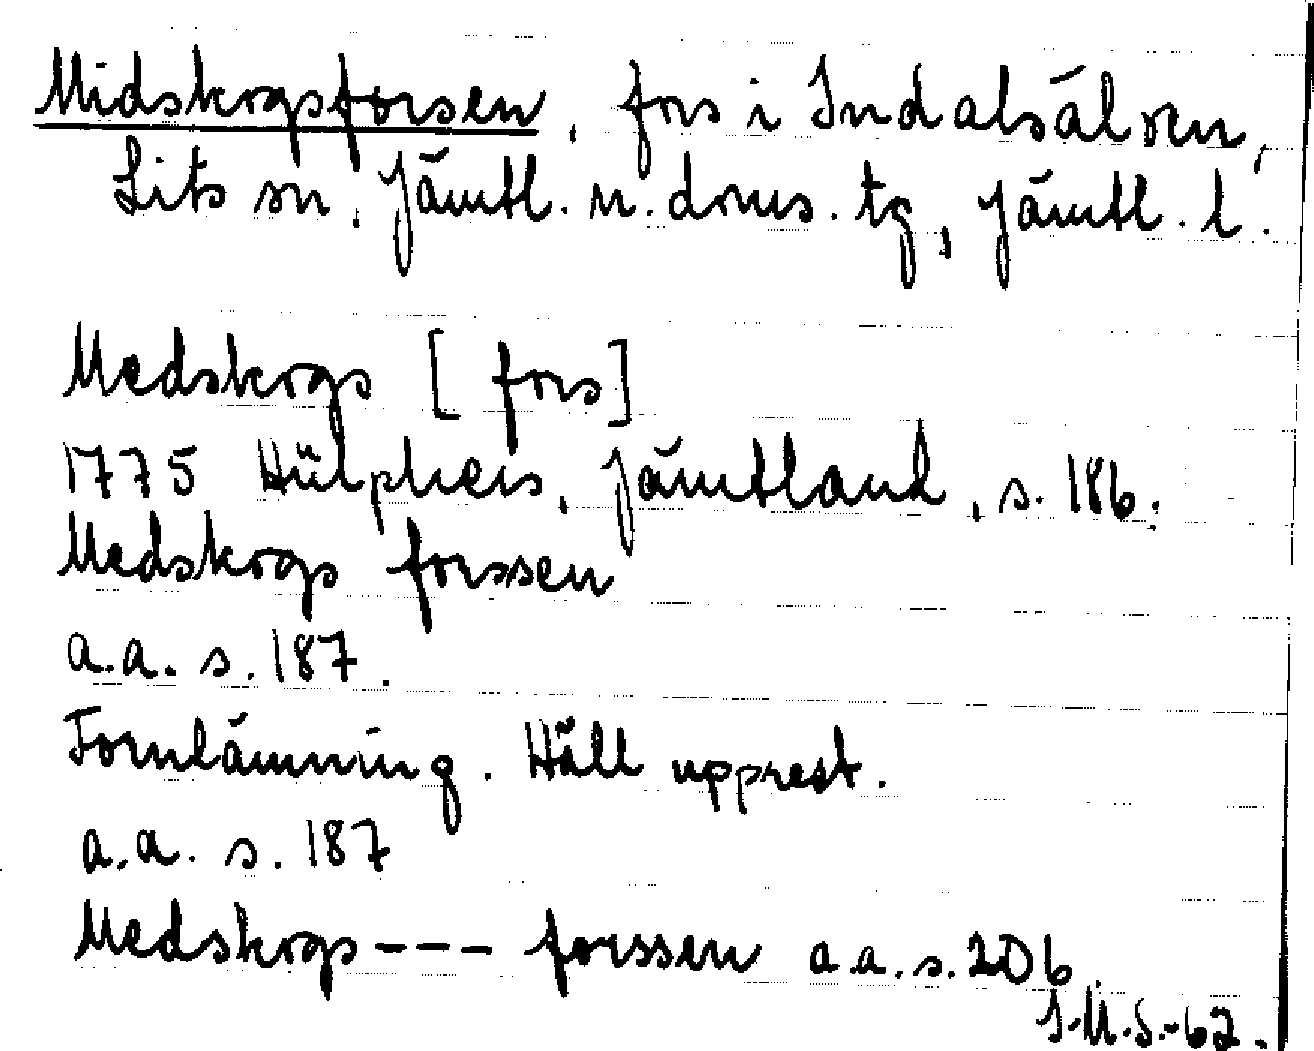 Midskogsforsen, fors i Indalsälven,
Lits sn, Jämtl. n. doms. tg, Jämtl. l.
Medskogs [fors]
1775 Hülphers, Jämtland, s. 186.
Medskogs forssen
a.a. s. 187.
Fornlämning. Häll upprest.
a.a. s. 187
Medskogs --- forssen a.a. s. 206
I.M.S.-62.